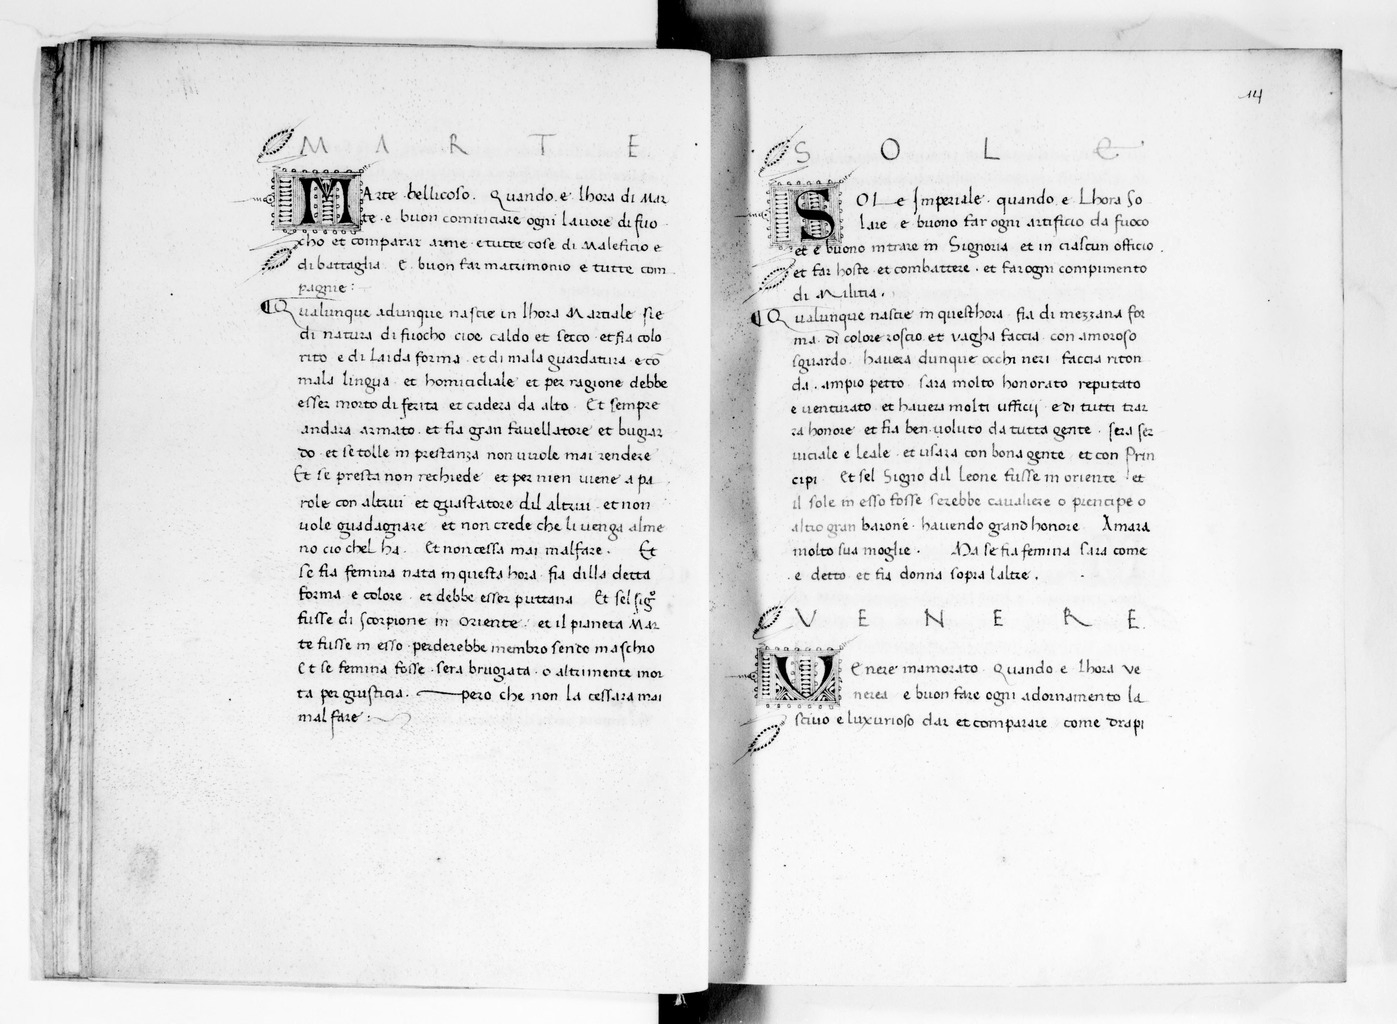 MARTE
MArte bellicoso. Quando e lhora di Mar
te e buon cominciare ogni lavore di fuo
cho et comparar arme e tutte cose di Maleficio e
di battaglia E buon far matrimonio e tutte com
pagnie:
Qualunque adunque nascie in lhora Martiale sie
di natura di fuocho cioe caldo et secco et fia colo
rito e di laida forma et di mala guardatura e cō
mala lingua et homicidiale et per ragione debbe
esser morto di ferita et cadera da alto. Et sempre
andara armato et fia gran favellatore et bugiar
do et se tolle in prestanza non vuole mai rendere
Et se presta non rechiede et per nien viene a pa
role con altrui et guastatore dil altrui et non
vole guadagnare et non crede che li venga alme
no cio chel ha. Et non cessa mai malfare. Et
se fia femina nata in questa hora fia dilla detta
forma e colore et debbe esser puttana Et sel sigo
fusse di scorpione in oriente: et il pianeta Mar
te fusse in esso perderebbe membro sendo maschio
Et se femina fosse sera brugiata o altrimente mor
ta per giusticia. pero che non la cessara mai
mal fare:
14
SOLE
SOL e Imperiale quando e Lhora So
lare e buono far ogni artificio da fuoco
et e buono intrare in Signoria et in ciascun officio.
et far hoste et combattere et far ogni compimento
di Militia.
Qualunque nascie in questhora fia di mezzana for
ma di colore roscio et vagha faccia con amoroso
sguardo. havera dunque occhi neri faccia riton
da. ampio petto sara molto honorato reputato
e venturato et havera molti ufficij e di tutti trar
ra honore et fia ben voluto da tutta gente. sera ser
viciale e leale et usara con bona gente et con Prin
cipi Et sel Signo dil Leone fusse in oriente et
il sole in esso fosse serebbe cavaliere o principe o
altro gran barone havendo grand honore Amara
molto sua moglie. Ma se fia femina sara come
e detto et fia donna sopra laltre.
VENERE.
VEnere inamorato Quando e lhora ve
nerea e buon fare ogni adornamento la
scivo e luxurioso dar et comparare come drapi